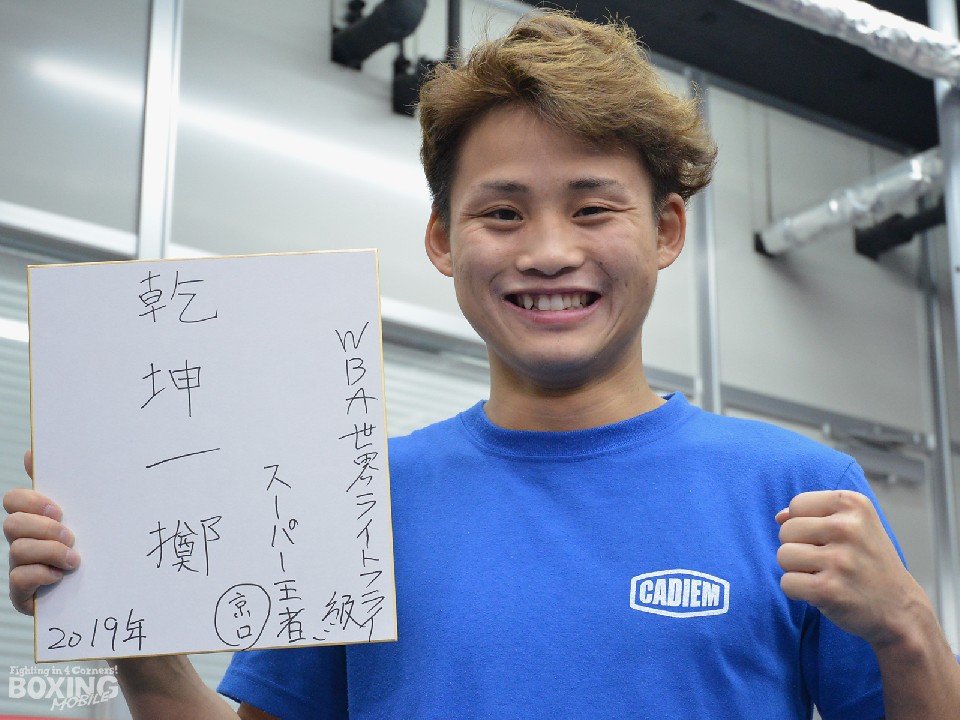 WBA世界ライトフライ級
スーパー王者
京口
乾坤一擲
2019年
CADIEM
Fighting in 4 Corners!
BOXING
MOBILE